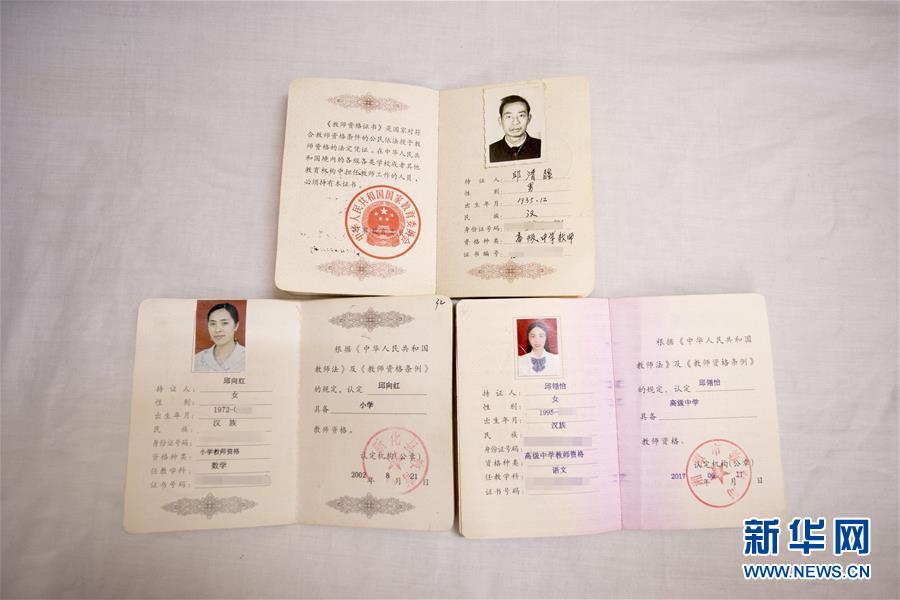 《教师资格证书》是国家对符
合教师资格条件的公民依法授予教
师资格的法定凭证。在中华人民共
和国境内的各级各类学校或者其他
教育机构中担任教师工作的人员，
必须持有本证书。
中华人民共和国国家教育委员会
持证人：邱清疆
性别：男
出生年月：1935.12
民族：汉
身份证号码：
资格种类：高级中学教师
证书编号：
持证人：邱向红
性别：女
出生年月：1972-
民族：汉族
身份证号码：
资格种类：小学教师资格
任教学科：数学
证书号码：
32
根据《中华人民共和国
教师法》及《教师资格条例》
的规定，认定 邱向红
具备 小学
教师资格。
认定机构(公章)
2002年8月21日
持证人：邱翎怡
性别：女
出生年月：1995-
民族：汉族
身份证号码：
资格种类：高级中学教师资格
任教学科：语文
证书号码：
根据《中华人民共和国
教师法》及《教师资格条例》
的规定，认定 邱翎怡
具备 高级中学
教师资格。
认定机构(公章)
2017年 月 日
新华网
WWW.NEWS.CN